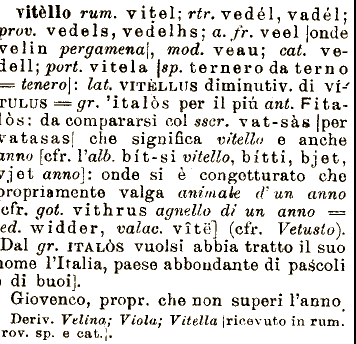 vitèllo rum. vitel; rtr. vedél, vadél;
prov. vedels, vedelhs; a. fr. veel [onde
velin pergamena], mod. veau; cat. ve-
dell; port. vitela [sp. ternero da terno
= tenero]: lat. VITÈLLUS diminutiv. di VÍ-
TULUS = gr. 'italòs per il più ant. Fita-
lòs: da compararsi col sscr. vat-sàs [per
vatasas] che significa vitello e anche
anno [cfr. l'alb. bit-si vitello, bitti, bjet,
vjet anno]: onde si è congetturato che
propriamente valga animale d'un anno
[cfr. got. vithrus agnello di un anno =
ted. widder, valac. vîtë] (cfr. Vetusto).
Dal gr. ITALÒS vuolsi abbia tratto il suo
nome l'Italia, paese abbondante di paścoli
e di buoi].
Giovenco, propr. che non superi l'anno.
Deriv. Velina; Viola; Vitella [ricevuto in rum.
prov. sp. e cat.].